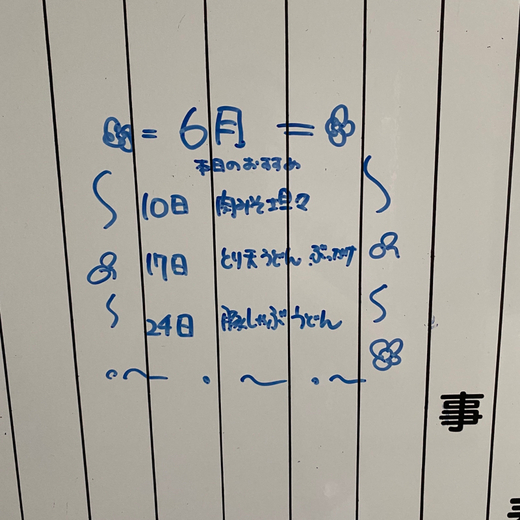 = 6月 =
本日のおすすめ
10日 肉みそ担々
17日 とり天うどん ぶっかけ
24日 豚しゃぶうどん
事